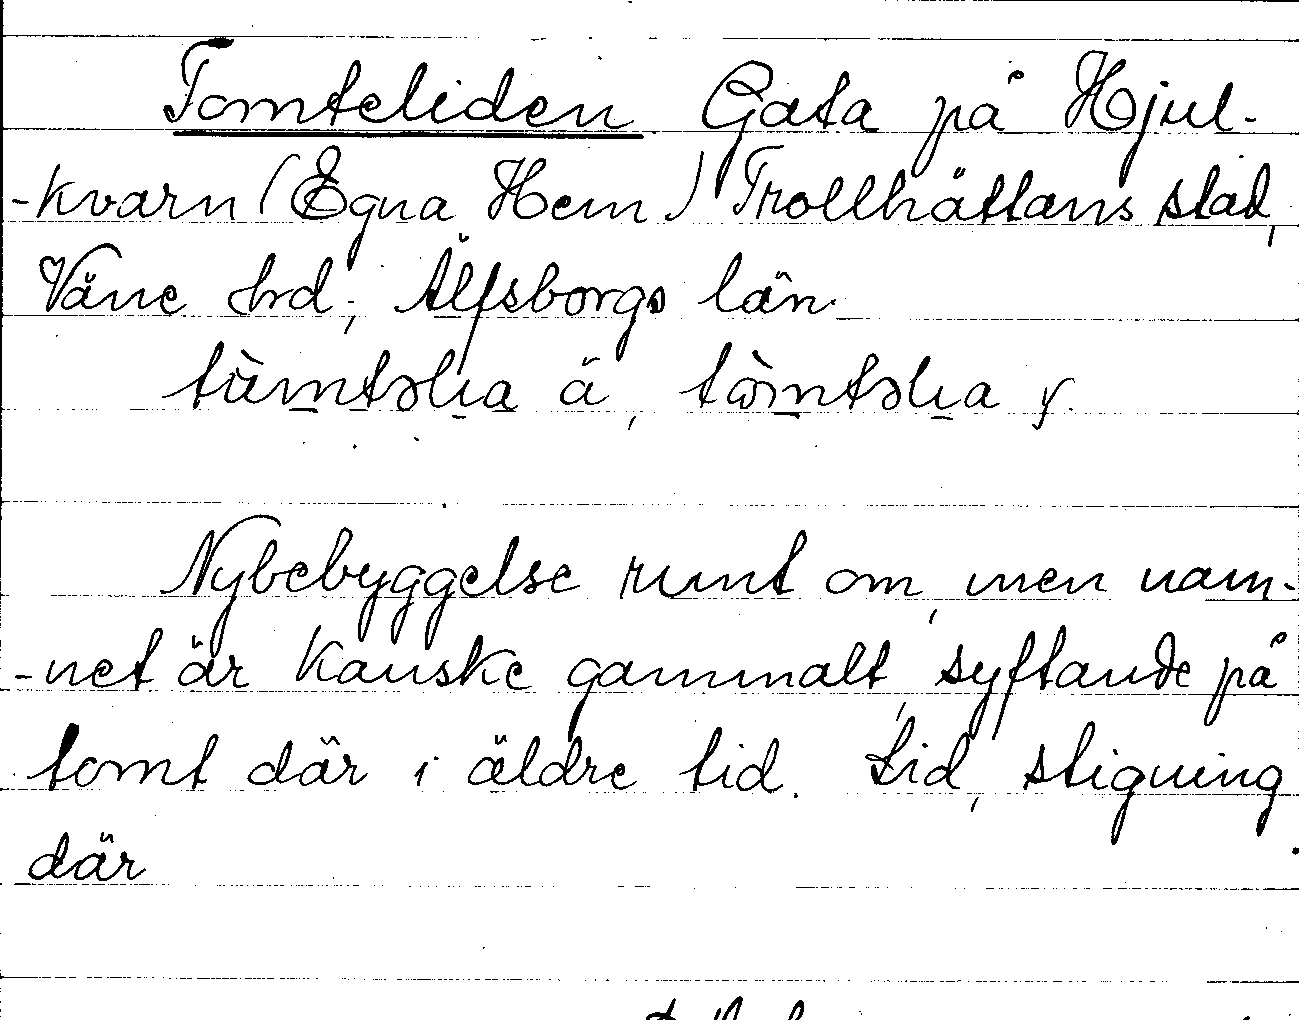 Tomteliden Gata på Hjul-
-kvarn (Egna Hem) Trollhättans stad,
Väne hrd; Älfsborgs län.
tùmtəlia ä, tòmtəlia y.
Nybebyggelse runt om, men nam-
-net är kanske gammalt, syftande på
tomt där i äldre tid. Lid, stigning
där